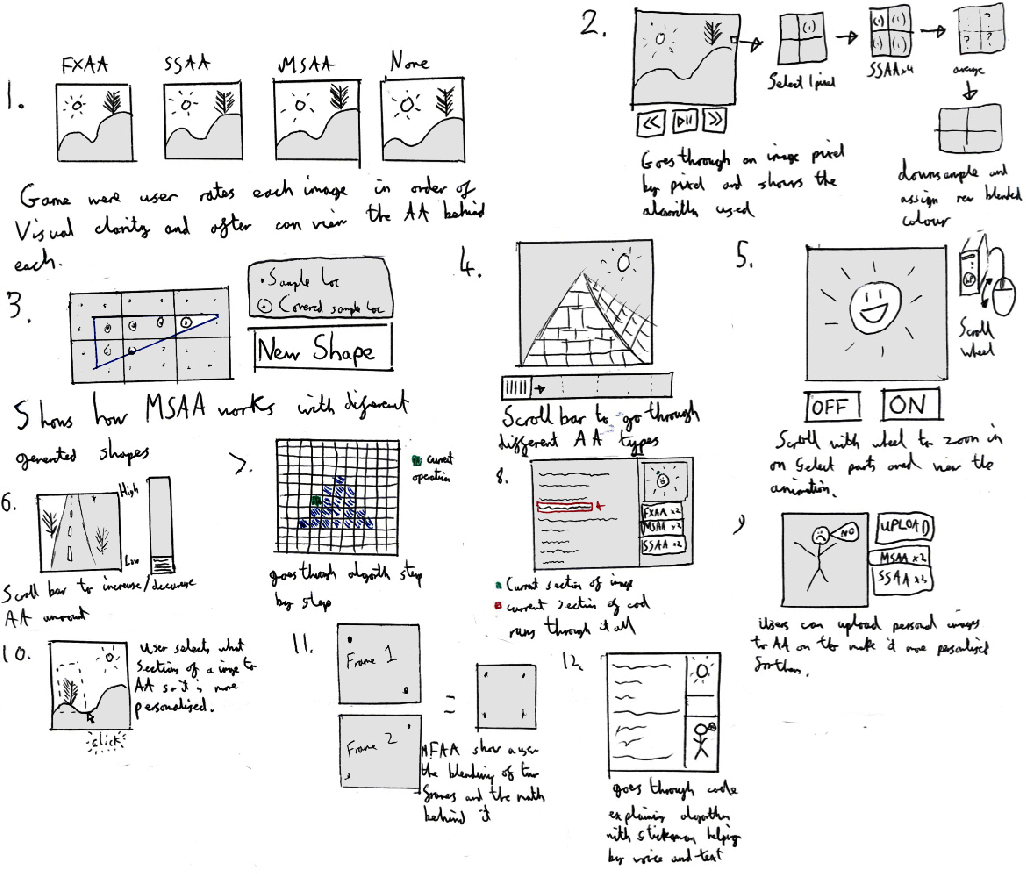 1.
FXAA SSAA MSAA None
Game were user rates each image in order of
Visual clarity and after can view the AA behind
each.
2.
Select 1 pixel
SSAAx4
average
Goes through an image pixel
by pixel and shows the
used
downsample and
assign new blended
colour
3.
Sample loc
Covered sample loc
New Shape
Shows how MSAA works with different
generated shapes
4.
Scroll bar to go through
different AA types
5.
Scroll
wheel
OFF ON
Scroll with wheel to zoom in
on select parts and view the
animation.
6.
High
Low
Scroll bar to increase/decrease
AA amount
7.
current
operation
goes through algorith step
by step
8.
FXAA x2
MSAA x2
SSAA x2
Current section of image
current section of cod
runs through it all
9
NO
UPLOAD
MSAA x2
SSAA x2
Users can upload personal images
to AA on to make it more personalised
for them.
10.
User selects what
section of a image to
AA so it is more
personalised.
click
11.
Frame 1
=
Frame 2
MFAA show
the blending of two
frames and the math
behind it
12.
goes through code
explaining algorithm
with stickman helping
by voice and text